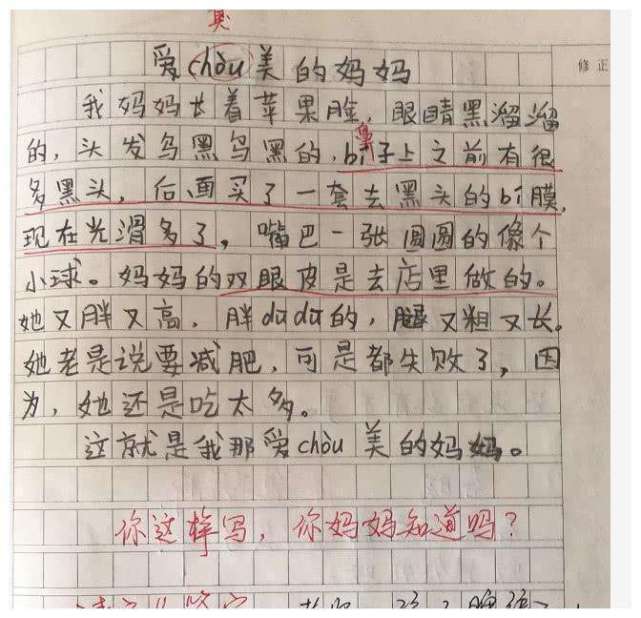 臭
爱(chòu)美的妈妈
修正
我妈妈长着苹果脸，眼睛黑溜溜
的，头发乌黑乌黑的，bí子上之前有很
鼻
多黑头，后面买了一套去黑头的bí膜，
现在光滑多了，嘴巴一张圆圆的像个
小球。妈妈的双眼皮是去店里做的。
她又胖又高，胖dūdū的，腿又粗又长。
她老是说要减肥，可是都失败了，因
为，她还是吃太多。
这就是我那爱chòu美的妈妈。
你这样写，你妈妈知道吗？